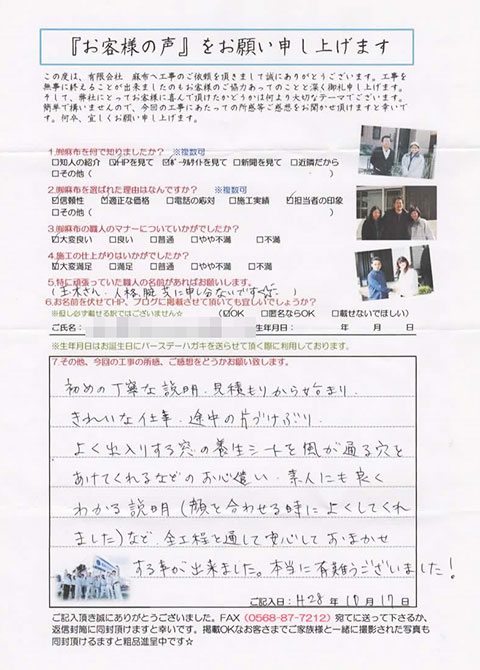 『お客様の声』をお願い申し上げます
この度は、有限会社　麻布へ工事のご依頼を頂きまして誠にありがとうございます。工事を
無事に終えることが出来ましたのもお客様のご協力あってのことと深く御礼申し上げます。
そして、弊社にとってお客様に喜んで頂けたかどうかは何より大切なテーマでございます。
簡単で構いませんので、今回の工事にあたっての所感等ご感想をお聞かせ頂けますと幸いで
す。何卒、宜しくお願い申し上げます。
1.㈲麻布を何で知りましたか？ ※複数可
□知人の紹介 ☑HPを見て ☑ポータルサイトを見て □新聞を見て □近隣だから
□その他（　　　）
2.㈲麻布を選ばれた理由はなんですか？ ※複数可
☑信頼性 ☑適正な価格 □電話の応対 □施工実績 ☑担当者の印象
□その他（　　　）
3.㈲麻布の職人のマナーについていかがでしたか？
☑大変良い □良い □普通 □やや不満 □不満
4.施工の仕上がりはいかがでしたか？
☑大変満足 □満足 □普通 □やや不満 □不満
5.特に頑張っていた職人の名前があればお願いします。
（玉木さん、人格、腕共に申し分ないです。）
6.お名前を伏せてHP、ブログに掲載させて頂いても宜しいでしょうか？
※但し必ず載せる訳ではございません☆ ☑OK □匿名ならOK □載せないでほしい）
ご氏名： 生年月日： 年 月 日
※生年月日はお誕生日にバースデーハガキを送らせて頂く際に利用しております。
7.その他、今回の工事の所感、ご感想をどうかお願い致します。
初めの丁寧な説明、見積もりから始まり、
きれいな仕事、途中の片づけぶり、
よく出入りする窓の養生シートを風が通る穴を
あけてくれるなどのお心遣い、素人にも良く
わかる説明（顔を合わせる時によくしてくれ
ました）など、全工程を通して安心しておまかせ
する事が出来ました。本当に有難うございました！
ご記入日：H28年10月17日
ご記入頂き誠にありがとうございました。FAX（0568-87-7212）宛てに送って下さるか、
返信封筒に同封頂けますと幸いです。掲載OKなお客さまでご家族様と一緒に撮影された写真も
同封頂けるますと粗品進呈中です☆